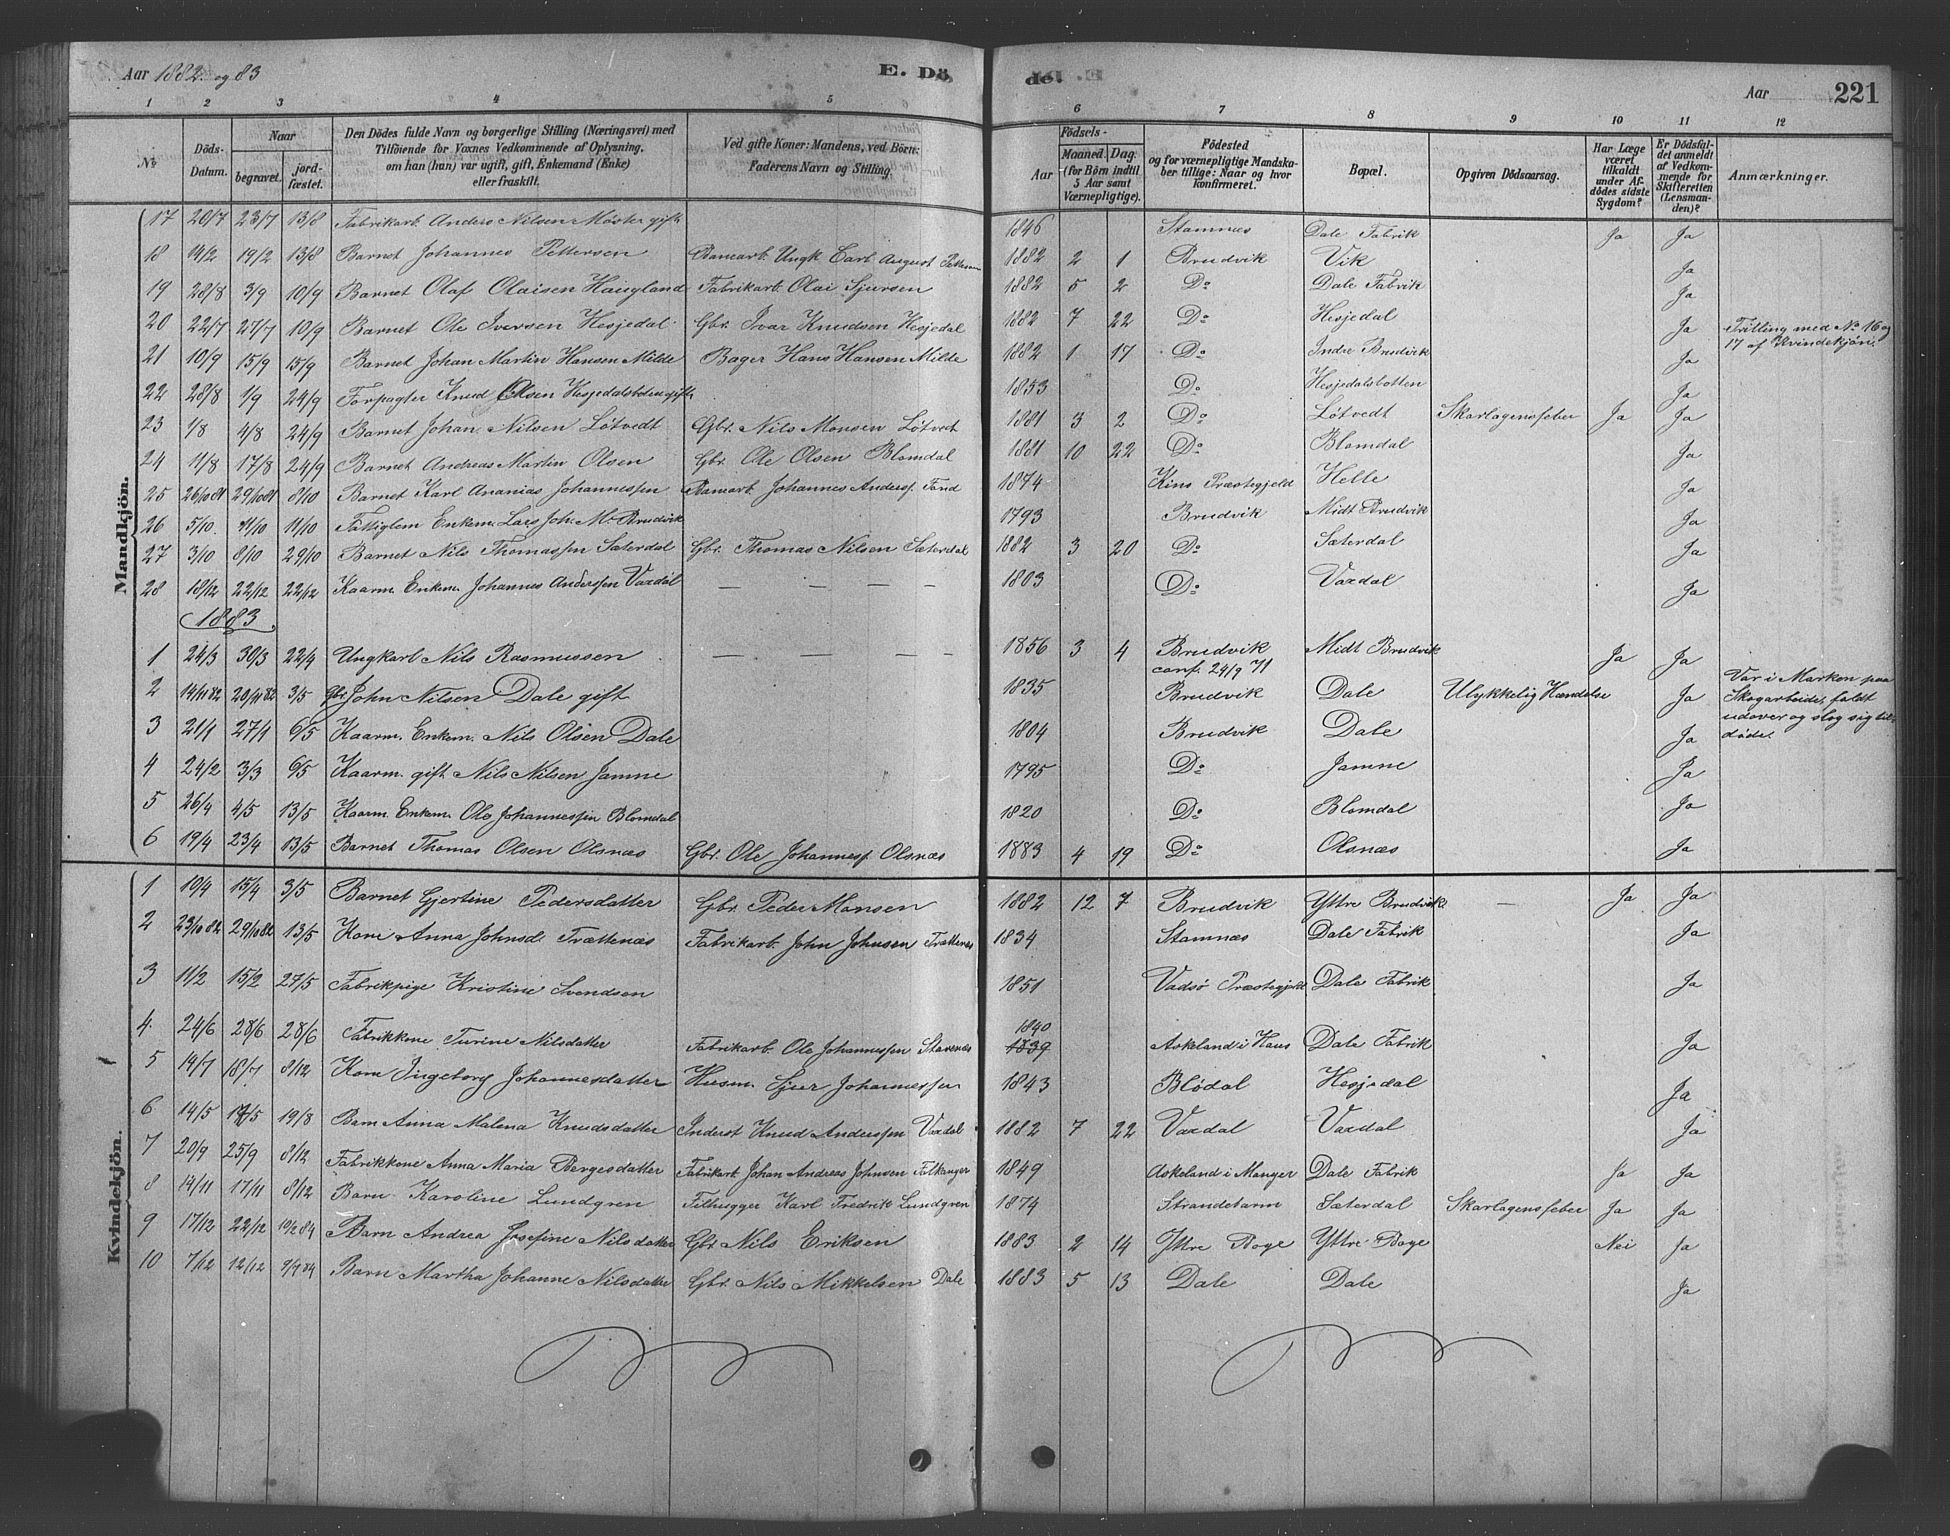 Aar 1882 og 83 E. Dö de. Aar 221
1 2 3 4 5 6 7 8 9 10 11 12
No
Döds-Datum.
Naar
begravet.
jord-fæstet.
Den Dödes fulde Navn og borgerlige Stilling (Næringsvei) med
Tilföiende for Voxnes Vedkommende af Oplysning,
om han (hun) var ugift, gift, Enkemand (Enke)
eller fraskilt.
Ved gifte Koner: Mandens, ved Börn:
Faderens Navn og Stilling.
Födsels-
Aar
Maaned. Dag.
(for Börn indtil
5 Aar samt
Værnepligtige).
Födested
og for værnepligtige Mandska-
ber tillige: Naar og hvor
konfirmeret.
Bopæl.
Opgiven Dödsaarsag.
Har Læge
været
tilkaldt
under Af-
dödes sidste
Sygdom?
Er Dödsfal-
det anmeldt
af Vedkom-
mende for
Skifteretten
(Lensman-
den)?
Anmærkninger.
Mandkjön.
17 20/7 23/7 13/8 Fabrikarb. Anders Nilsen Møster gift 1846 Stamnæs Dale Fabrik Ja Ja
18 14/2 19/2 13/8 Barnet Johannes Pettersen Ungk Carl August Pettersen 1882 2 1 Brudvik Vik Ja
19 28/8 3/9 10/9 Barnet Olaf Olaisen Haugland Fabrikarb. Olai Sjursen 1882 5 2 Do Dale Fabrik Ja
20 22/7 27/7 10/9 Barnet Ole Iversen Hesjedal Gbr. Ivar Knudsen Hesjedal 1882 7 22 Do Hesjedal Ja Trilling med No 16 og
17 af Kvindekjön.
21 10/9 15/9 15/9 Barnet Johan Martin Hansen Milde Bager Hans Hansen Milde 1882 1 17 Do Indre Brudvik Ja
22 28/8 1/9 24/9 Forpagter Knud Olsen Hesjedalsbotten gift 1853 Do Hesjedalsbotten Ja
23 1/8 4/8 24/9 Barnet Johan Nilsen Lötvedt Gbr. Nils Monsen Lötvedt 1881 3 2 Do Lötvedt Skarlagensfeber Ja Ja
24 11/8 17/8 24/9 Barnet Andreas Martin Olsen Gbr. Ole Olsen Blomdal 1881 10 22 Do Blomdal Ja
25 26/10 81 29/10 81 8/10 Barnet Karl Ananias Johannessen Johannes Anders. 1874 Kins Præstegjeld Helle Ja
26 5/10. 11/10 11/10 Fattiglem Enkem. Lars Joh. M. Brudvik 1793 Brudvik Midt Brudvik Ja
27 3/10 8/10 29/10 Barnet Nils Thomassen Sæterdal Gbr. Thomas Nilsen Sæterdal 1882 3 20 Do Sæterdal Ja
28 18/12 22/12 22/12 Kaarm. Enkem. Johannes Anderssen Vaxdal — — — — 1803 Do Vaxdal Ja
1883
1 24/3 30/3 22/4 Ungkarl Nils Rasmussen — — — — 1856 3 4 Brudvik Midt Brudvik Ja Ja
conf. 24/9 71
2 14/11 82 20/11 82 3/5 Gbr. John Nilsen Dale gift 1835 Brudvik Dale Ulykkelig Hændelse Ja Var i Marken paa
Skogarbeide, faldt
udover og slog sig til-
døde.
3 21/1 27/1 6/5 Kaarm. Enkem. Nils Olsen Dale 1804 Brudvik Dale Ja
4 24/2 3/3 6/5 Kaarm. gift Nils Nilsen Jamne 1795 Do Jamne Ja
5 26/4 4/5 13/5 Kaarm. Enkem. Ole Johannessen Blomdal 1820 Do Blomdal Ja
6 19/4 23/4 13/5 Barnet Thomas Olsen Olsnæs Gbr. Ole Johanness. Olsnæs 1883 4 19 Do Olsnæs Ja
Kvindekjön.
1 10/4 15/4 3/5 Barnet Gjertine Pedersdatter Gbr. Peder Monsen 1882 12 7 Brudvik Yttre Brudvik — Ja Ja
2 23/10 82 29/10 82 13/5 Kone Anna Johnsd. Trættenæs Fabrikarb. John Johnsen Trættenæs 1834 Stamnæs Dale Fabrik Ja
3 11/2 15/2 27/5 Fabrikpige Kristine Svendsen 1851 Vadsö Præstegjeld Dale Fabrik Ja
4. 24/6 28/6 28/6 Fabrikkone Turine Nilsdatter Fabrikarb. Ole Johannessen Stavenæs 1840 1839 Askeland i Haus Dale Fabrik Ja
5 14/7 18/7 8/12 Kone Ingeborg Johannesdatter Husm. Sjur Johannessen 1843 Blödal Hesjedal Ja
6 14/5 17/5 19/8 Barn Anna Malena Knudsdatter Inderst Knud Anderssen Vaxdal 1882 7 22 Vaxdal Vaxdal Ja
7 20/9 25/9 8/12 Fabrikkone Anna Maria Bergesdatter Fabrikarb. Johan Andreas Johnsen 1849 Askeland i Manger Dale Fabrik Ja Ja
8 14/11 17/11 8/12 Barn Karoline Lundgren Filhugger Karl Fredrik Lundgren 1874 Strandebarm Sæterdal Skarlagensfeber Ja Ja
9 17/12 22/12 10/2 84 Barn Andrea Josefine Nilsdatter Gbr. Nils Eriksen 1883 2 14 Yttre Boge Yttre Boge Nei Ja
10 7/12 12/12 9/4 84 Barn Martha Johanne Nilsdatter Gbr. Nils Mikkelsen Dale 1883 5 13 Dale Dale Ja